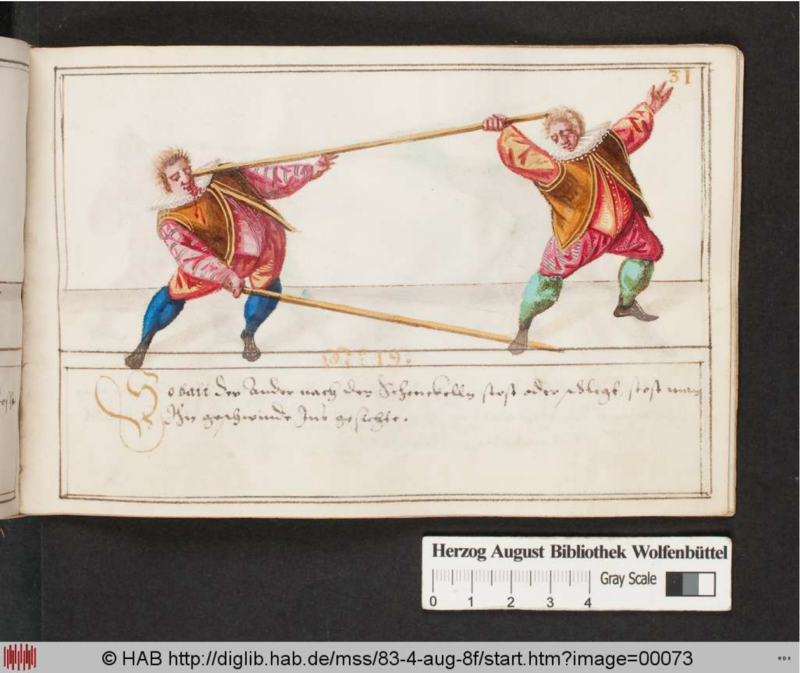 31
N: 19.
So baltt der Ander nach den Schenckelln stost oder schlegt, stost man
Ihn geschwinde Ins gesichte.
Herzog August Bibliothek Wolfenbüttel
Gray Scale
0 1 2 3 4
© HAB http://diglib.hab.de/mss/83-4-aug-8f/start.htm?image=00073